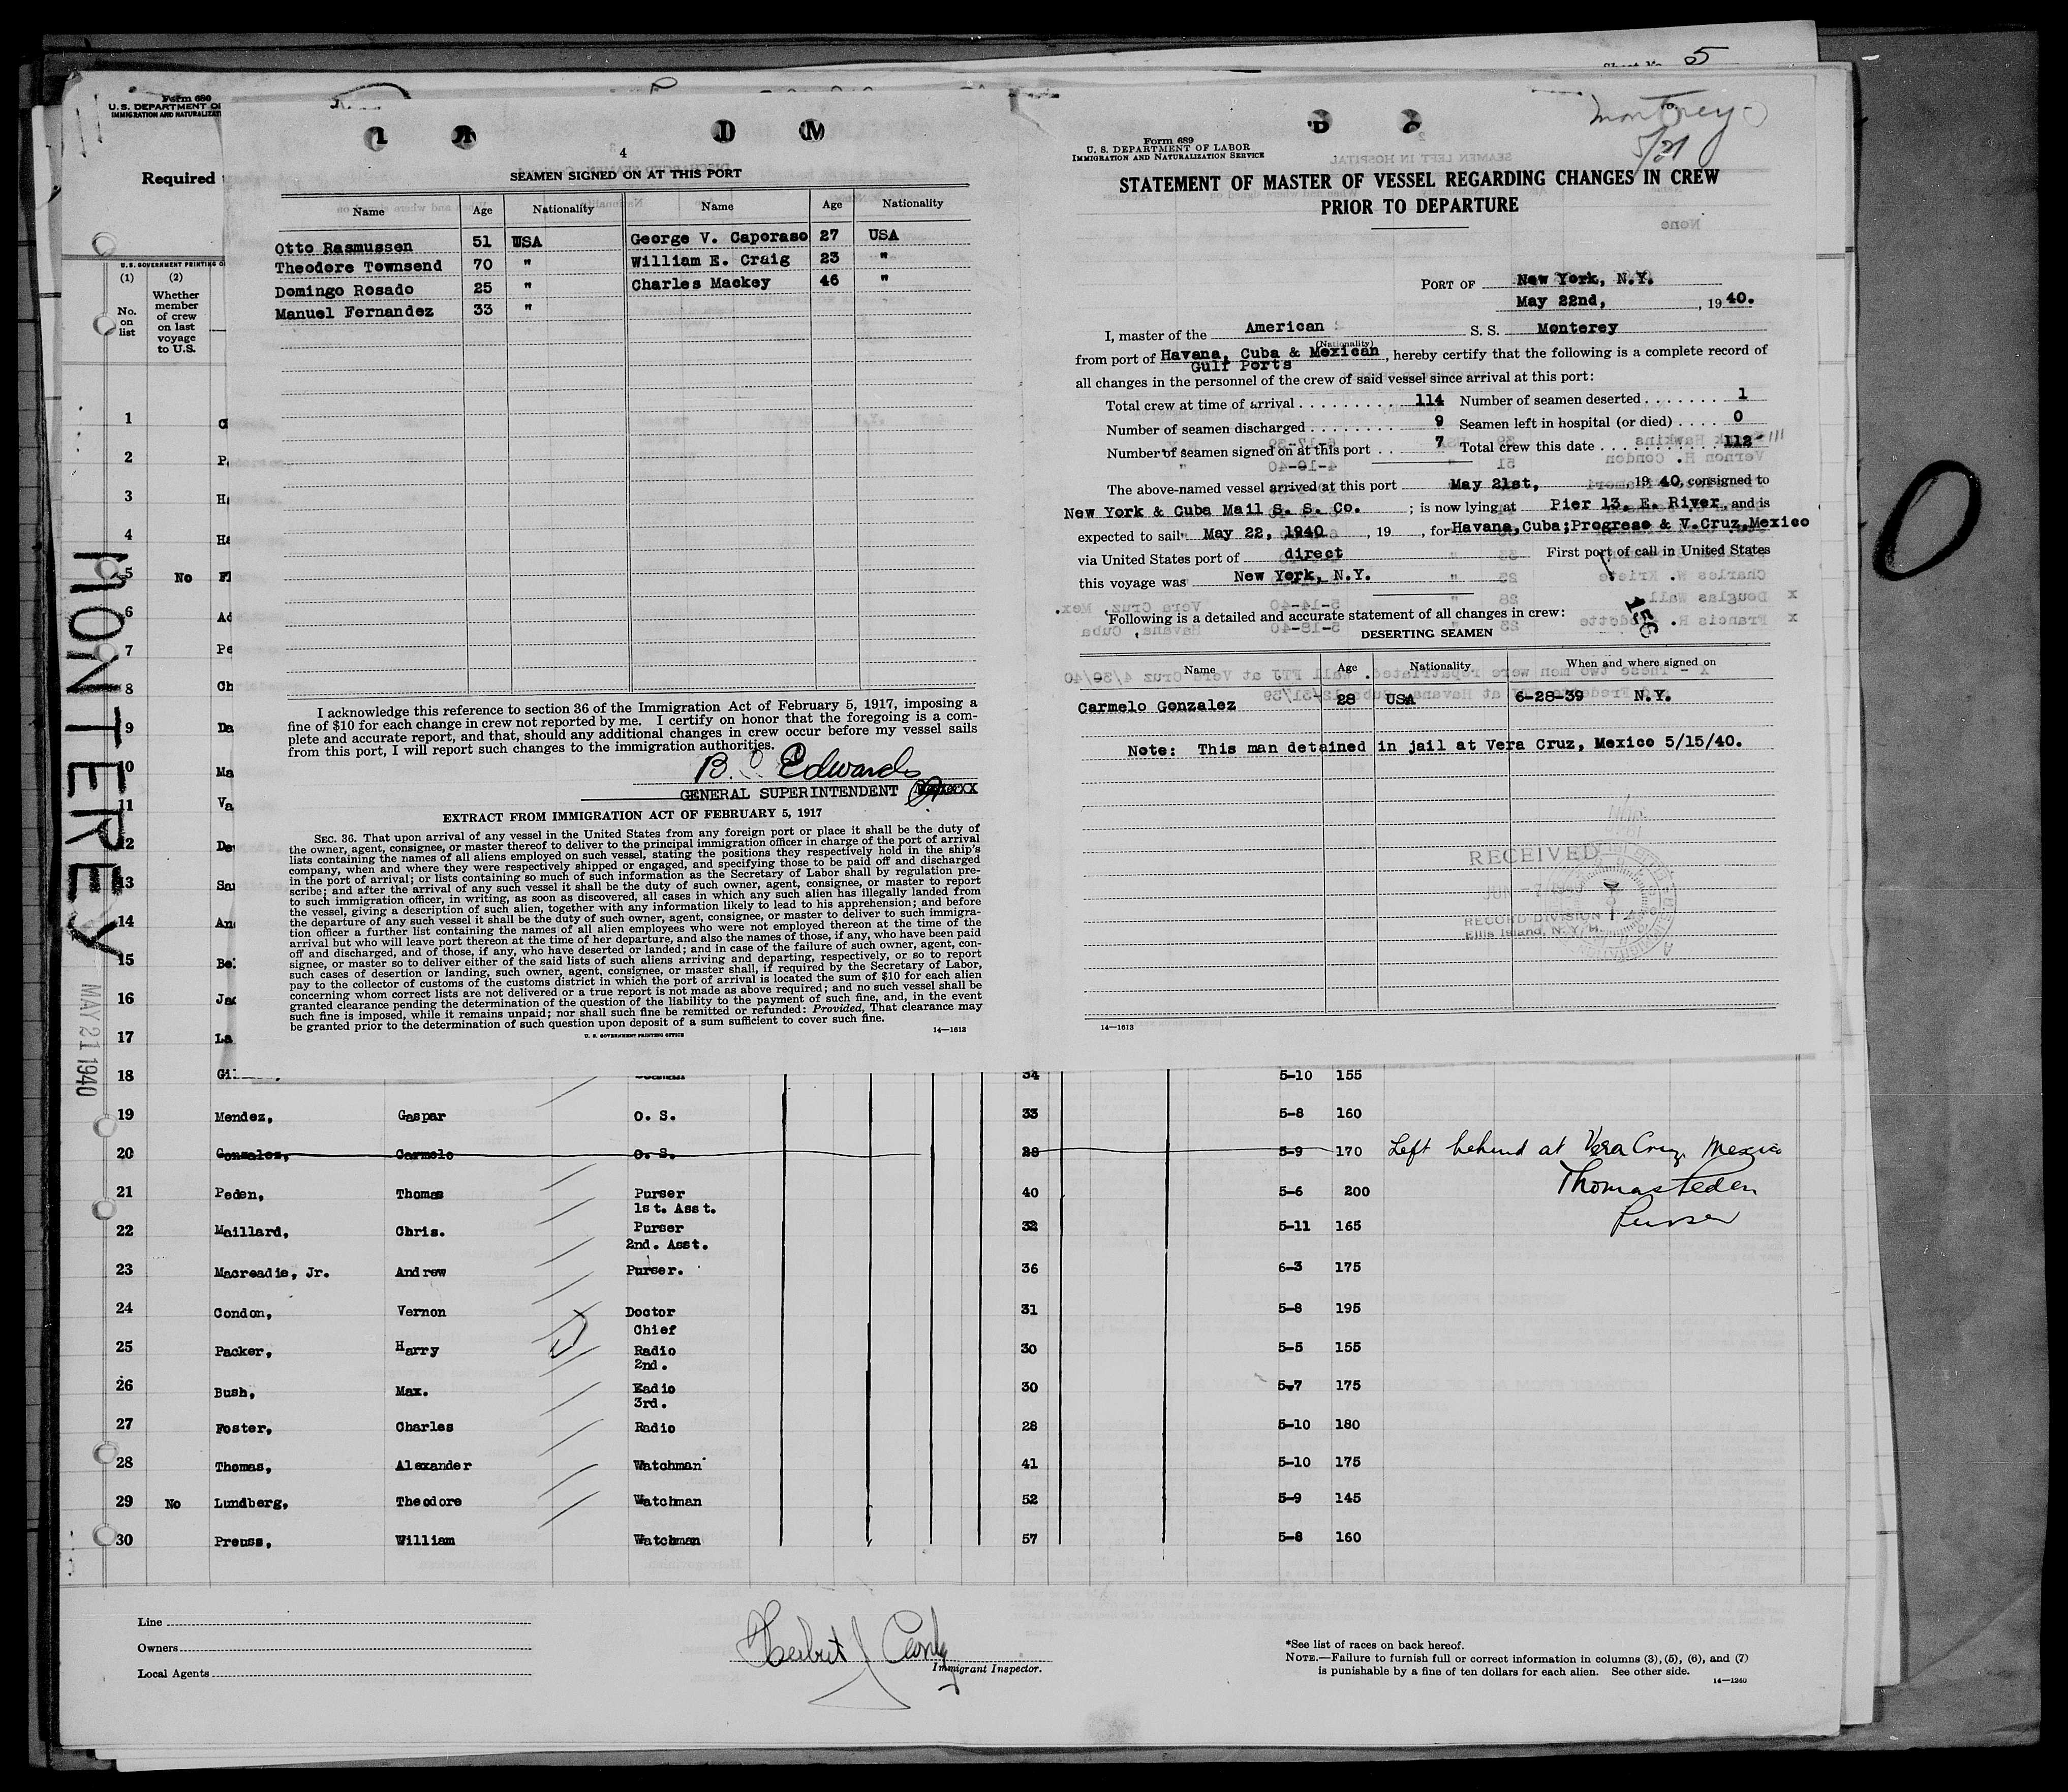 5
Form 680
U. S. DEPARTMENT OF
IMMIGRATION AND NATURALIZATI
Required
U. S. GOVERNMENT PRINTING O
(1) (2)
No. on list
Whether member of crew on last voyage to U.S.
4
SEAMEN SIGNED ON AT THIS PORT
Name Age Nationality Name Age Nationality
Otto Rasmussen 51 USA George V. Caporaso 27 USA
Theodore Townsend 70 " William E. Craig 23 "
Domingo Rosado 25 " Charles Mackey 46 "
Manuel Fernandez 33 "
I acknowledge this reference to section 36 of the Immigration Act of February 5, 1917, imposing a
fine of $10 for each change in crew not reported by me. I certify on honor that the foregoing is a com-
plete and accurate report, and that, should any additional changes in crew occur before my vessel sails
from this port, I will report such changes to the immigration authorities.
B. Edwards
GENERAL SUPERINTENDENT
EXTRACT FROM IMMIGRATION ACT OF FEBRUARY 5, 1917
SEC. 36. That upon arrival of any vessel in the United States from any foreign port or place it shall be the duty of
the owner, agent, consignee, or master thereof to deliver to the principal immigration officer in charge of the port of arrival
lists containing the names of all aliens employed on such vessel, stating the positions they respectively hold in the ship's
company, when and where they were respectively shipped or engaged, and specifying those to be paid off and discharged
in the port of arrival; or lists containing so much of such information as the Secretary of Labor shall by regulation pre-
scribe; and after the arrival of any such vessel it shall be the duty of such owner, agent, consignee, or master to report
to such immigration officer, in writing, as soon as discovered, all cases in which any such alien has illegally landed from
the vessel, giving a description of such alien, together with any information likely to lead to his apprehension; and before
the departure of any such vessel it shall be the duty of such owner, agent, consignee, or master to deliver to such immigra-
tion officer a further list containing the names of all alien employees who were not employed thereon at the time of the
arrival but who will leave port thereon at the time of her departure, and also the names of those, if any, who have been paid
off and discharged, and of those, if any, who have deserted or landed; and in case of the failure of such owner, agent, con-
signee, or master so to deliver either of the said lists of such aliens arriving and departing, respectively, or so to report
such cases of desertion or landing, such owner, agent, consignee, or master shall, if required by the Secretary of Labor,
pay to the collector of customs of the customs district in which the port of arrival is located the sum of $10 for each alien
concerning whom correct lists are not delivered or a true report is not made as above required; and no such vessel shall be
granted clearance pending the determination of the question of the liability to the payment of such fine, and, in the event
such fine is imposed, while it remains unpaid; nor shall such fine be remitted or refunded: Provided, That clearance may
be granted prior to the determination of such question upon deposit of a sum sufficient to cover such fine.
14—1613
U. S. GOVERNMENT PRINTING OFFICE
Monterey
5/21
Form 689
U. S. DEPARTMENT OF LABOR
IMMIGRATION AND NATURALIZATION SERVICE
STATEMENT OF MASTER OF VESSEL REGARDING CHANGES IN CREW
PRIOR TO DEPARTURE
PORT OF New York, N.Y.
May 22nd, , 19 40.
I, master of the American S. S. Monterey
(Nationality)
from port of Havana, Cuba & Mexican , hereby certify that the following is a complete record of
Gulf Ports
all changes in the personnel of the crew of said vessel since arrival at this port:
Total crew at time of arrival . . . . . . . . . . 114 Number of seamen deserted . . . . . . . 1
Number of seamen discharged . . . . . . . . . . 9 Seamen left in hospital (or died) . . . . 0
Number of seamen signed on at this port . . 7 Total crew this date . . . . . . . . . . . 112 - 111
The above-named vessel arrived at this port May 21st, , 19 40, consigned to
New York & Cuba Mail S. S. Co. ; is now lying at Pier 13, E. River, and is
expected to sail May 22, 1940 , 19 , for Havana,Cuba;Progreso & V.Cruz,Mexico
via United States port of direct First port of call in United States
this voyage was New York, N.Y.
Following is a detailed and accurate statement of all changes in crew:
156
DESERTING SEAMEN
Name Age Nationality When and where signed on
Carmelo Gonzalez 28 USA 6-28-39 N.Y.
Note: This man detained in jail at Vera Cruz, Mexico 5/15/40.
RECEIVED
JUN -7 1940
RECORD DIVISION
Ellis Island, N. Y. H.
14—1613
MONTEREY
MAY 21 1940
1
2
3
4
5 No
6
7
8
9
10
11
12
13
14
15
16
17
18 34 5-10 155
19 Mendez, Gaspar O. S. 33 5-8 160
20 Gonzalez, Carmelo O. S. 28 5-9 170 Left behind at Vera Cruz Mexico
21 Peden, Thomas Purser 40 5-6 200 Thomas Peden
Purser
22 Maillard, Chris. 1st. Asst. Purser 32 5-11 165
23 Macreadie, Jr. Andrew 2nd. Asst. Purser. 36 6-3 175
24 Condon, Vernon Doctor 31 5-8 195
25 Packer, Harry Chief Radio 30 5-5 155
26 Bush, Max. 2nd. Radio 30 5-7 175
27 Foster, Charles 3rd. Radio 28 5-10 180
28 Thomas, Alexander Watchman 41 5-10 175
29 No Lundberg, Theodore Watchman 52 5-9 145
30 Preuss, William Watchman 57 5-8 160
Line
Owners
Local Agents
Immigrant Inspector.
*See list of races on back hereof.
NOTE.—Failure to furnish full or correct information in columns (3), (5), (6), and (7)
is punishable by a fine of ten dollars for each alien. See other side.
14—1240
0